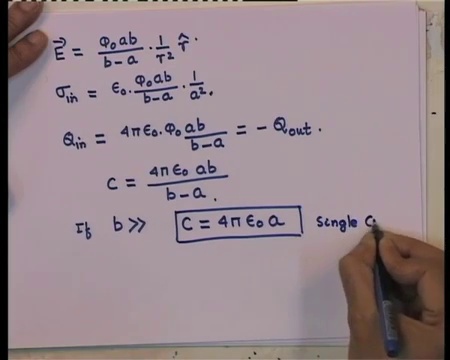 E⃗ = Φ₀ab/(b-a) · 1/r² r̂.
σin = ϵ₀. Φ₀ab/(b-a) · 1/a².
Qin = 4πϵ₀. Φ₀ ab/(b-a) = - Qout.
C = 4πϵ₀ ab/(b-a).
If b>> C = 4πϵ₀ a Single C